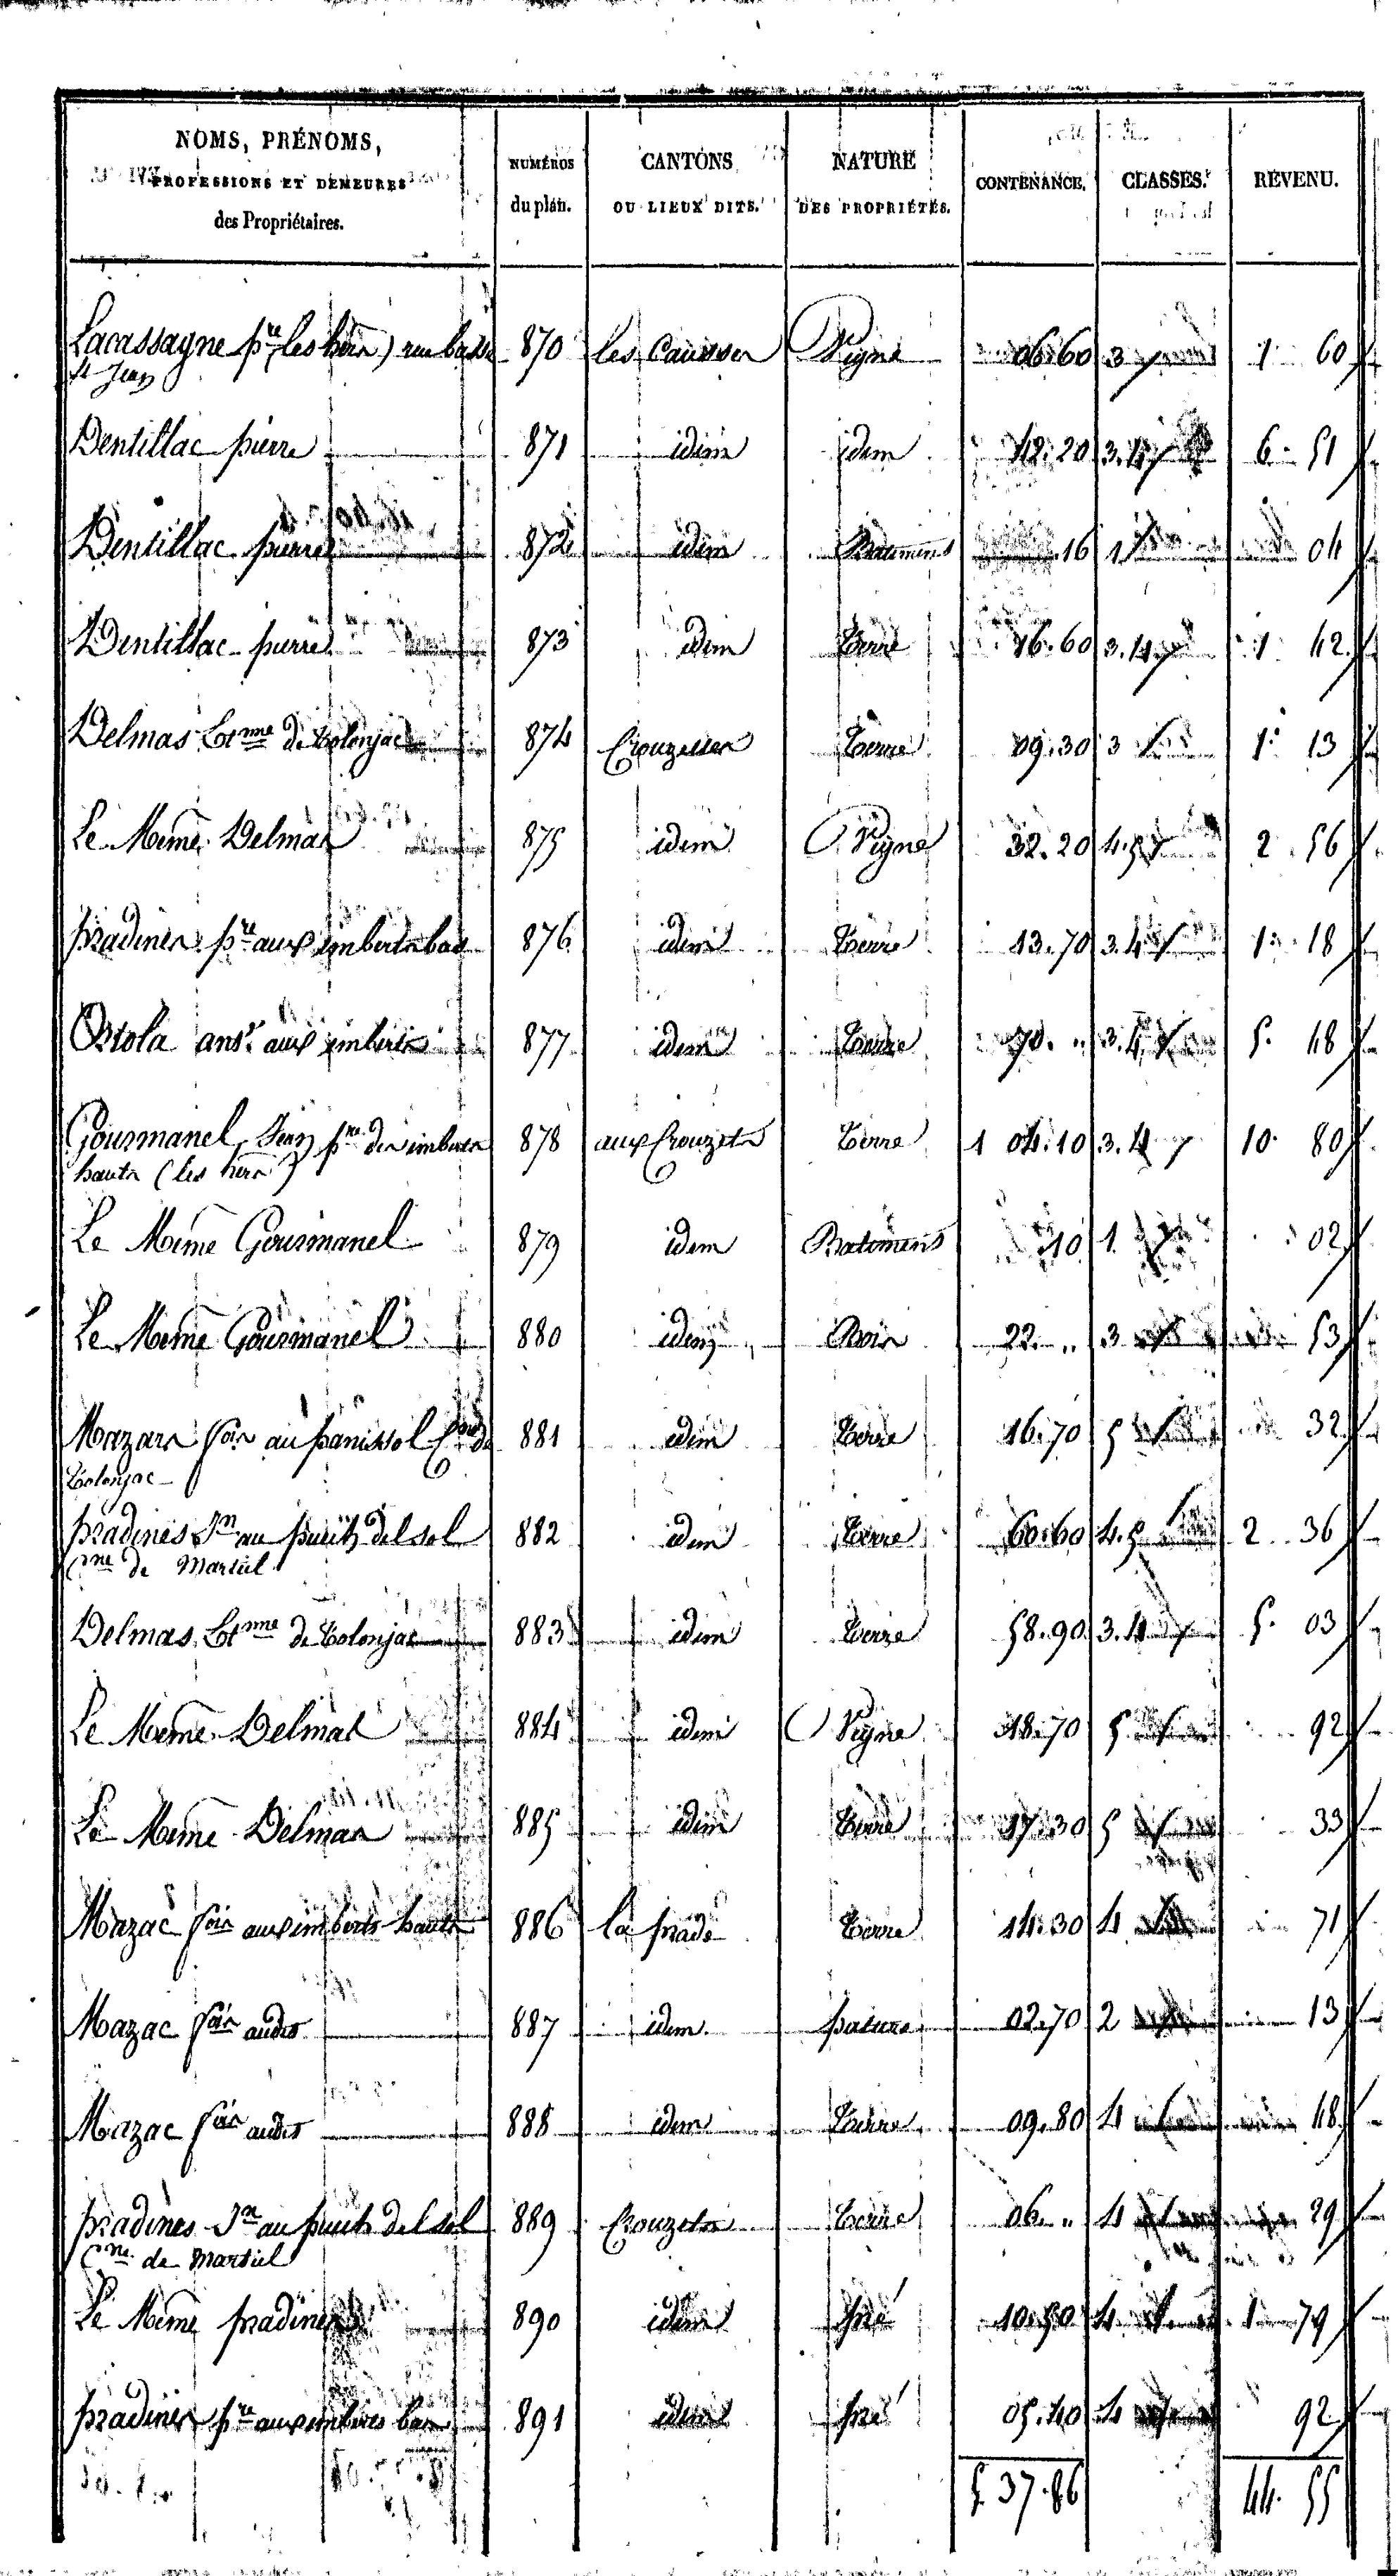 NOMS, PRÉNOMS, PROFESSIONS ET DEMEURES des Propriétaires. | NUMÉROS du plan. | CANTONS OU LIEUX DITS. | NATURE DES PROPRIÉTÉS. | CONTENANCE. | CLASSES. | REVENU.
Lacassagne pre (les hérn) rue basse | 870 | les Causses | Vigne | 06.60 | 3 | 1 60
st Jean
Dentillac pierre | 871 | idem | idem | 42.20 | 3.4 | 6 51
Dentillac pierre | 872 | idem | Batimens | 16 | 1 | 04
Dentillac pierre | 873 | idem | Terre | 16.60 | 3.4 | 1 42
Delmas Lotme de Tolonjac | 874 | Crouzettes | Terre | 09.30 | 3 | 1 13
Le Meme Delmas | 875 | idem | Vigne | 32.20 | 4.5 | 2 56
pradines pre aux imberts bas | 876 | idem | Terre | 13.70 | 3.4 | 1 18
ans. aux imberts | 877 | idem | Terre | 70. " | 3.4 | 5 48
Gourmanel Jean pre des imberts | 878 | aux Crouzets | Terre | 1 04.10 | 3.4 | 10 80
hauts (les hern)
Le Meme Gourmanel | 879 | idem | Batimens | 10 | 1 | 02
Le Meme Gourmanel | 880 | idem | Bois | 22. " | 3 | 53
Mazars fois au panissol Cne de | 881 | idem | Terre | 16.70 | 5 | 32
Tolonjac
pradines Jn au puits del sol | 882 | idem | Terre | 60.60 | 4.5 | 2 36
Cne de Martiel
Delmas Lotme de Tolonjac | 883 | idem | Terre | 58.90 | 3.4 | 5 03
Le Meme Delmas | 884 | idem | Vigne | 18.70 | 5 | 92
Le Meme Delmas | 885 | idem | Terre | 17.30 | 5 | 33
Mazac fois aux imberts hauts | 886 | la prade | Terre | 14.30 | 4 | 71
Mazac fois audit | 887 | idem | pature | 02.70 | 2 | 13
Mazac fois audit | 888 | idem | Terre | 09.80 | 4 | 48
pradines Jn au puits del sol | 889 | Crouzets | Terre | 06. " | 4 | 29
Cne de Martiel
Le Meme pradines | 890 | idem | pré | 10.50 | 4 | 1 79
pradines pre aux imberts bas | 891 | idem | pré | 05.40 | 4 | 92
5 37.86 | 44. 55